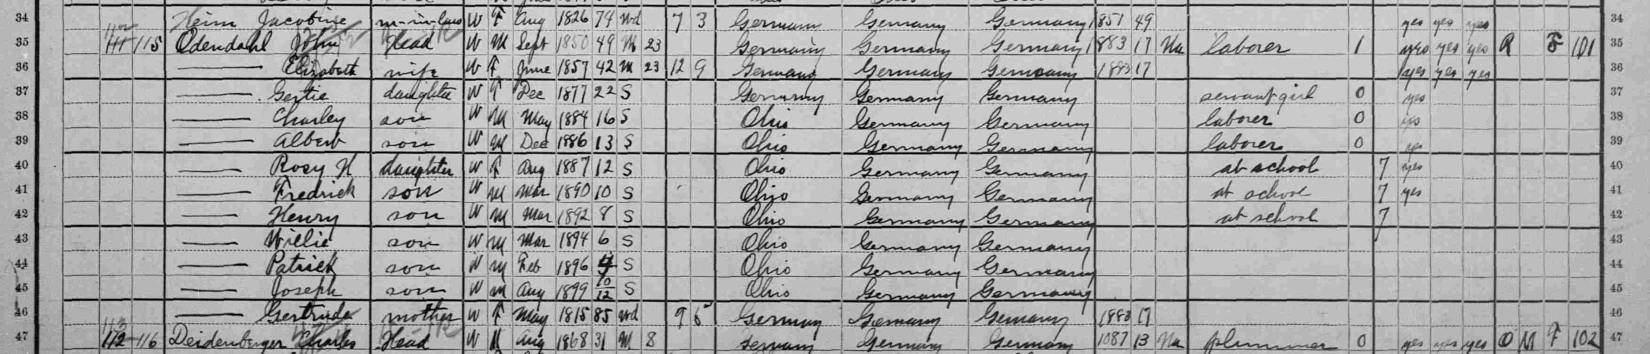 34 Heim Jacobine m-in-law W F Aug 1826 74 Wd 7 3 Germany Germany Germany 1851 49 yes yes yes 34
35 111 115 Odendahl John Head W M Sept 1850 49 M 23 Germany Germany Germany 1883 17 Na laborer 1 yes yes yes R F 101 35
36 — Elizabeth wife W F June 1857 42 M 23 12 9 Germany Germany Germany 1883 17 yes yes yes 36
37 — Gertie daughter W F Dec 1877 22 S Germany Germany Germany servant girl 0 yes 37
38 — Charley son W M May 1884 16 S Ohio Germany Germany laborer 0 yes 38
39 — Albert son W M Dec 1886 13 S Ohio Germany Germany laborer 0 yes 39
40 — Rosy H daughter W F Aug 1887 12 S Ohio Germany Germany at school 7 yes 40
41 — Fredrick son W M Mar 1890 10 S Ohio Germany Germany at school 7 yes 41
42 — Henry son W M Mar 1892 8 S Ohio Germany Germany at school 7 42
43 — Willie son W M Mar 1894 6 S Ohio Germany Germany 43
44 — Patrick son W M Feb 1896 4 S Ohio Germany Germany 44
45 — Joseph son W M Aug 1899 10/12 S Ohio Germany Germany 45
46 — Gertrude mother W F May 1815 85 Wd 9 5 Germany Germany Germany 1883 17 46
47 112 116 Deidenberger Charles Head W M Aug 1868 31 M 8 Germany Germany Germany 1887 13 Na plummer 0 yes yes yes O M F 102 47